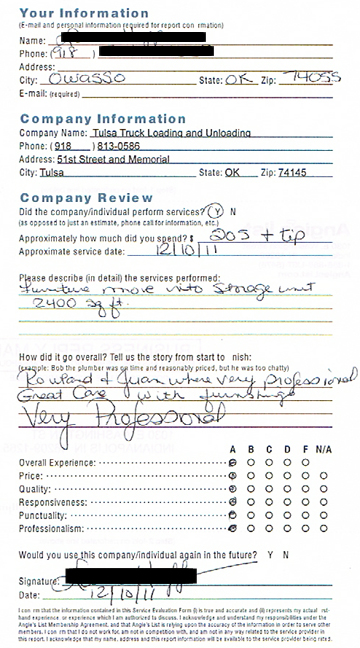 Your Information
(E-mail and personal information required for report con rmation)
Name:
Phone: (918 )
Address:
City: Owasso State: OK Zip: 74055
E-mail: (required)
Company Information
Company Name: Tulsa Truck Loading and Unloading
Phone: (918 ) 813-0586
Address: 51st Street and Memorial
City: Tulsa State: OK Zip: 74145
Company Review
Did the company/individual perform services? Y N
(as opposed to just an estimate, phone call for information, etc.)
Approximately how much did you spend? $ 205 + tip
Approximate service date: 12/10/11
Please describe (in detail) the services performed:
Furniture move into Storage unit
2400 sq ft.
How did it go overall? Tell us the story from start to nish:
(example: Bob the plumber was on time and reasonably priced, but he was too chatty)
Rowland & Juan where very professional
Great Care with furnishings
Very Professional
A B C D F N/A
Overall Experience:
Price:
Quality:
Responsiveness:
Punctuality:
Professionalism:
Would you use this company/individual again in the future? Y N
Signature:
Date: 12/10/11
I con rm that the information contained in this Service Evaluation Form (i) is true and accurate and (ii) represents my actual rst-
hand experience, or experience which I am authorized to discuss. I acknowledge and understand my responsibilities under the
Angie's List Membership Agreement, and that Angie's List is relying upon the accuracy of the information in order to serve other
members. I con rm that I do not work for, am not in competition with, and am not in any way related to the service provider in
this report. I acknowledge that my name, address and this report information will be available to the service provider being rated.